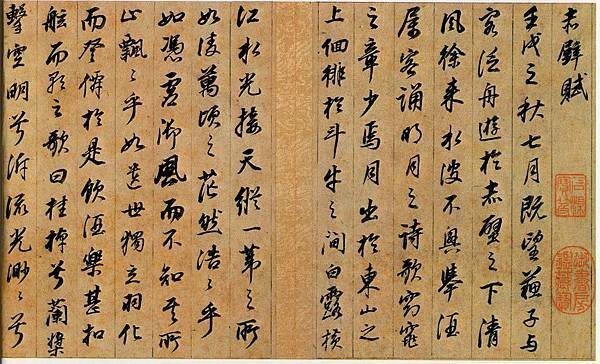 赤壁賦
壬戌之秋七月既望蘇子與
客泛舟遊於赤壁之下清
風徐來水波不興舉酒
屬客誦明月之詩歌窈窕
之章少焉月出於東山之
上徊徘於斗牛之间白露橫
江水光接天縱一葦之所
如凌萬頃之茫然浩浩乎
如憑虛御風而不知其所
止飄飄乎如遺世獨立羽化
而登僊於是飲酒樂甚扣
舷而歌之歌曰桂棹兮蘭槳
擊空明兮泝流光渺渺兮